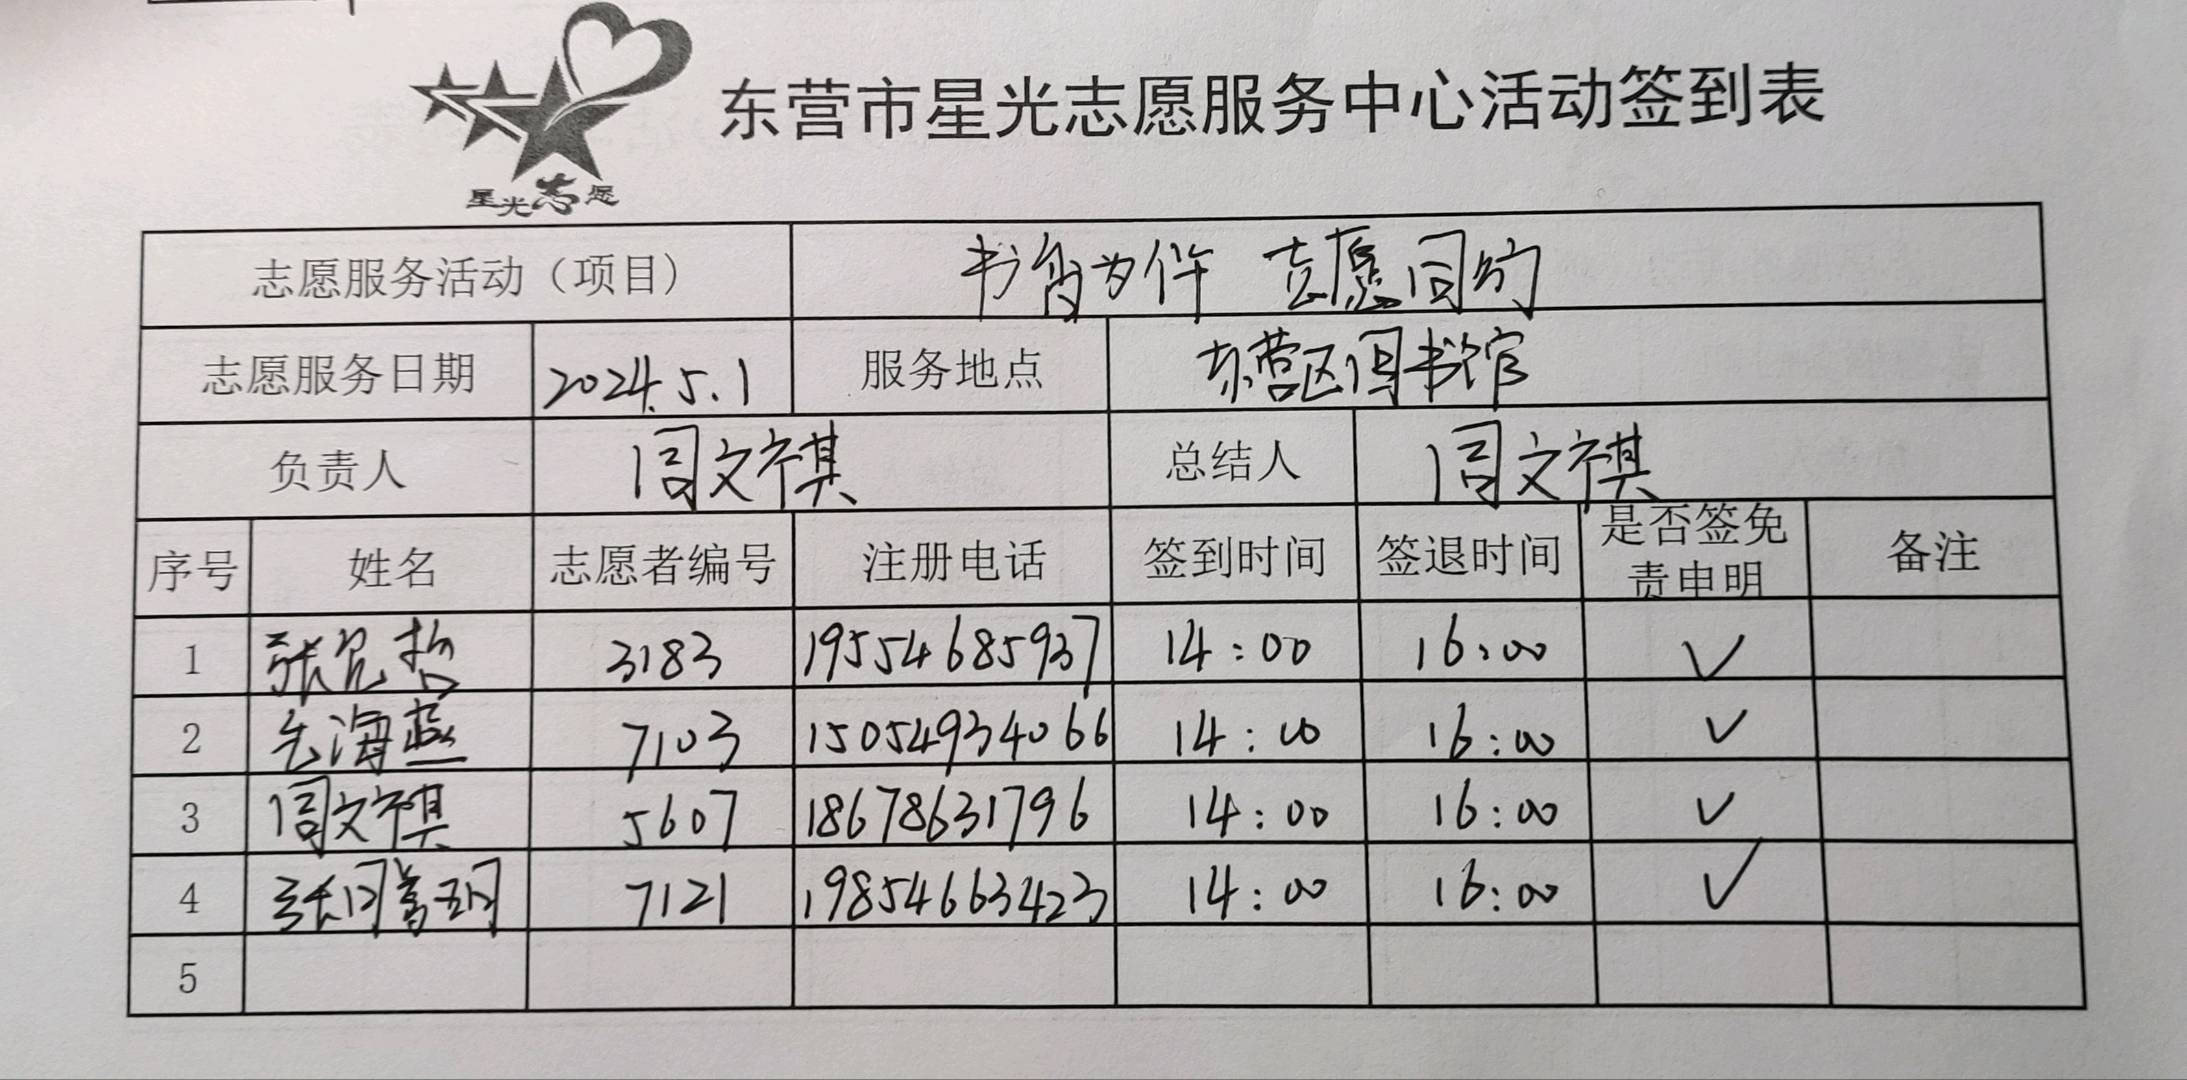 东营市星光志愿服务中心活动签到表
星光志愿
志愿服务活动（项目） 书香为伴 志愿同行
志愿服务日期 2024.5.1 服务地点 东营区图书馆
负责人 闫文祺 总结人 闫文祺
序号 姓名 志愿者编号 注册电话 签到时间 签退时间 是否签免责申明 备注
1 张 哲 3183 19554685937 14:00 16:00 ✓
2 海燕 7103 15054934066 14:00 16:00 ✓
3 闫文祺 5607 18678631796 14:00 16:00 ✓
4 张 7121 19854663423 14:00 16:00 ✓
5